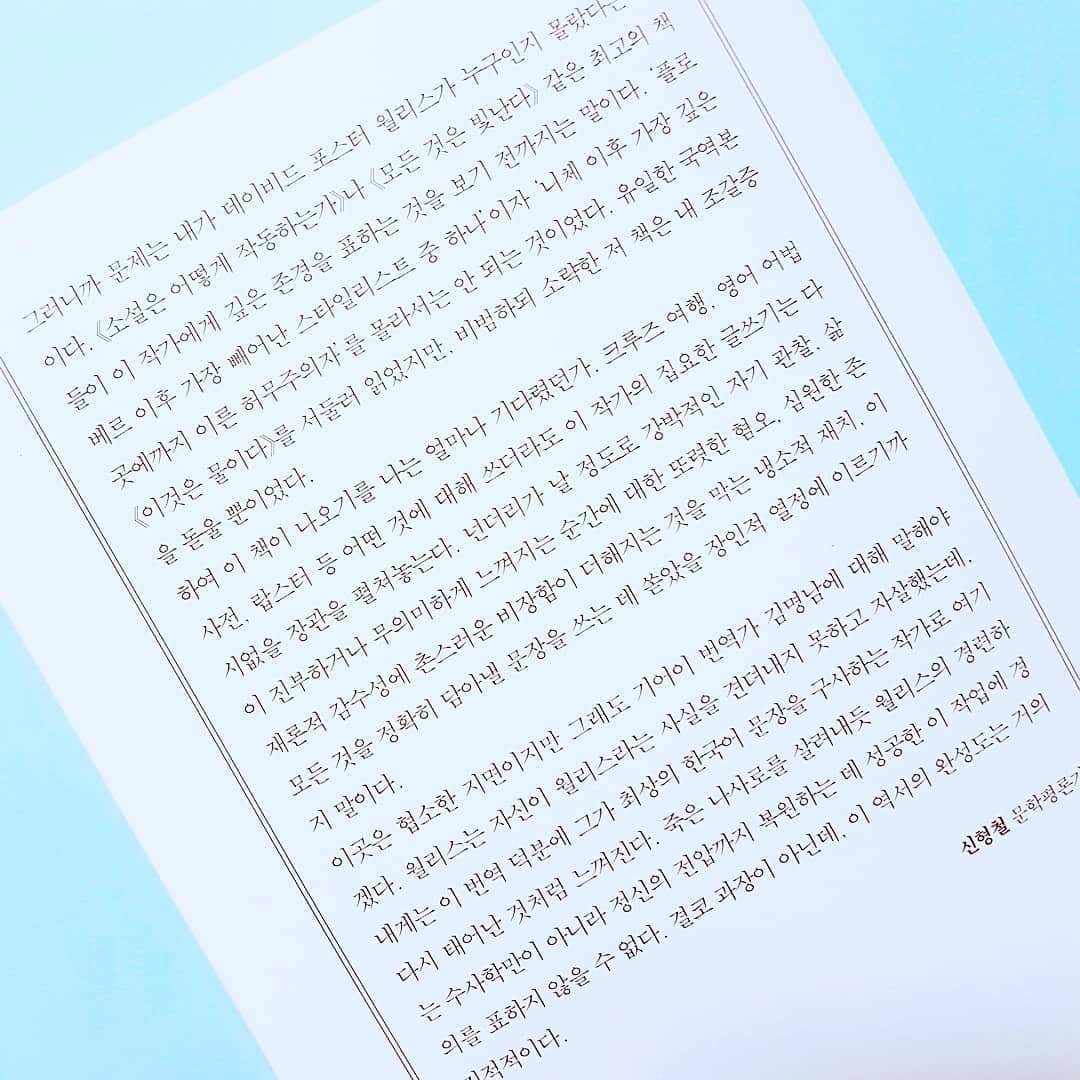 그러니까 문제는 내가 데이비드 포스터 월리스가 누구인지 몰랐다는
이다. 《소설은 어떻게 작동하는가》나 《모든 것은 빛난다》 같은 최고의 책
들이 이 작가에게 깊은 존경을 표하는 것을 보기 전까지는 말이다. ‘플로
베르 이후 가장 빼어난 스타일리스트 중 하나’이자 ‘니체 이후 가장 깊은
곳에까지 이른 허무주의자’를 몰라서는 안 되는 것이었다. 유일한 국역본
《이것은 물이다》를 서둘러 읽었지만, 비범하되 소략한 저 책은 내 조갈증
을 돋울 뿐이었다.
하여 이 책이 나오기를 나는 얼마나 기다렸던가. 크루즈 여행, 영어 어법
사전, 랍스터 등 어떤 것에 대해 쓰더라도 이 작가의 집요한 글쓰기는 다
시없을 장관을 펼쳐놓는다. 넌더리가 날 정도로 강박적인 자기 관찰, 삶
이 진부하거나 무의미하게 느껴지는 순간에 대한 또렷한 혐오, 심원한 존
재론적 감수성에 촌스러운 비장함이 더해지는 것을 막는 냉소적 재치, 이
모든 것을 정확히 담아낼 문장을 쓰는 데 쏟았을 장인적 열정에 이르기까
지 말이다.
이곳은 협소한 지면이지만 그래도 기어이 번역가 김명남에 대해 말해야
겠다. 월리스는 자신이 월리스라는 사실을 견뎌내지 못하고 자살했는데,
내게는 이 번역 덕분에 그가 최상의 한국어 문장을 구사하는 작가로 여기
다시 태어난 것처럼 느껴진다. 죽은 나사로를 살려내듯 월리스의 경련하
는 수사학만이 아니라 정신의 전압까지 복원하는 데 성공한 이 작업에 경
의를 표하지 않을 수 없다. 결코 과장이 아닌데, 이 역서의 완성도는 거의
기적적이다.
신형철 문학평론가